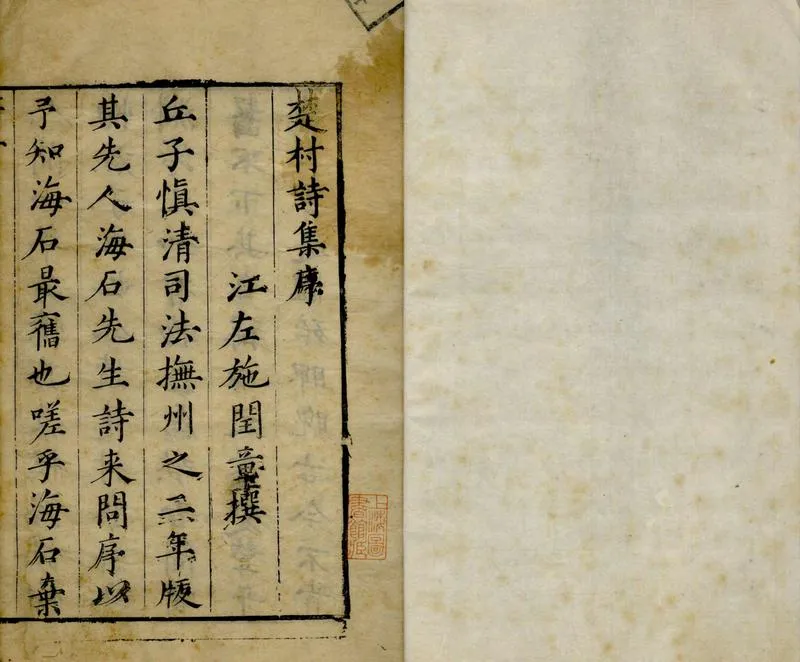 楚村詩集序
江左施閏章撰
丘子慎清司法撫州之二年版
其先人海石先生詩来問序以
予知海石最舊也嗟乎海石棄
上海圖
書館藏